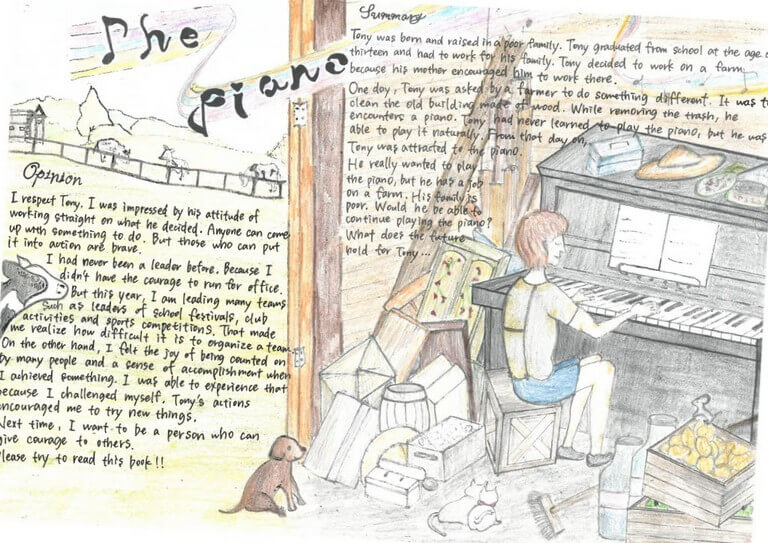 The
piano
Summary
Tony was born and raised in a poor family. Tony graduated from school at the age of
thirteen and had to work for his family. Tony decided to work on a farm,
because his mother encouraged him to work there.
One day, Tony was asked by a farmer to do something different. It was to
clean the old building made of wood. While removing the trash, he
encounters a piano. Tony had never learned to play the piano, but he was
able to play it naturally. From that day on,
Tony was attracted to the piano.
He really wanted to play
the piano, but he has a job
on a farm. His family is
poor. Would he be able to
continue playing the piano?
What does the future
hold for Tony...
Opinion
I respect Tony. I was impressed by his attitude of
working straight on what he decided. Anyone can come
up with something to do. But those who can put
it into action are brave.
I had never been a leader before. Because I
didn't have the courage to run for office.
But this year, I am leading many teams
such as leaders of school festivals, club
activities and sports competitions. That made
me realize how difficult it is to organize a team.
On the other hand, I felt the joy of being counted on
by many people and a sense of accomplishment when
I achieved something. I was able to experience that
because I challenged myself. Tony's actions
encouraged me to try new things.
Next time, I want to be a person who can
give courage to others.
Please try to read this book!!